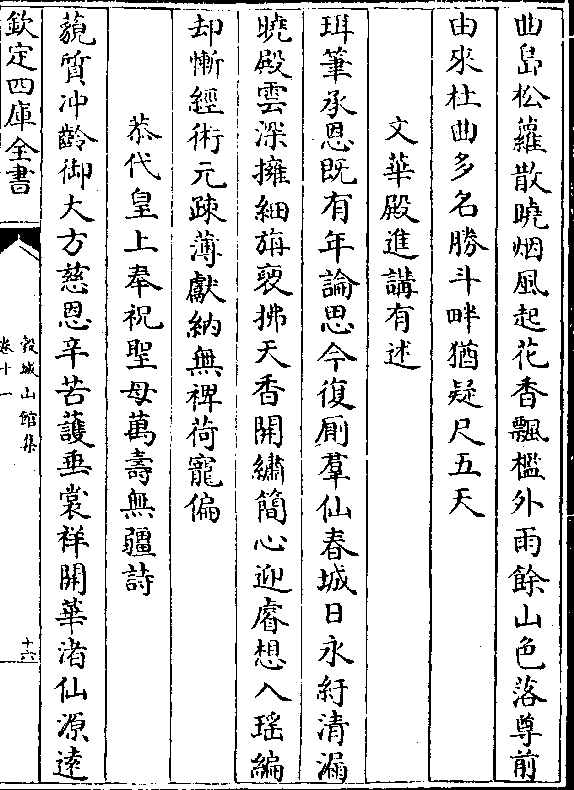 曲島松蘿散曉烟風起花香飄檻外雨餘山色落尊前
由來杜曲多名勝斗畔猶疑尺五天
文華殿進講有述
珥筆承恩既有年論思今復厠羣仙春城日永紆清漏
曉殿雲深擁細旃褎拂天香開繡簡心迎睿想入瑤編
却慚經術元疎薄獻納無裨荷寵偏
恭代皇上奉祝聖母萬壽無疆詩
藐質冲齡御大方慈恩辛苦護垂裳祥開華渚仙源遠
欽定四庫全書
穀城山館集
卷十一
十六